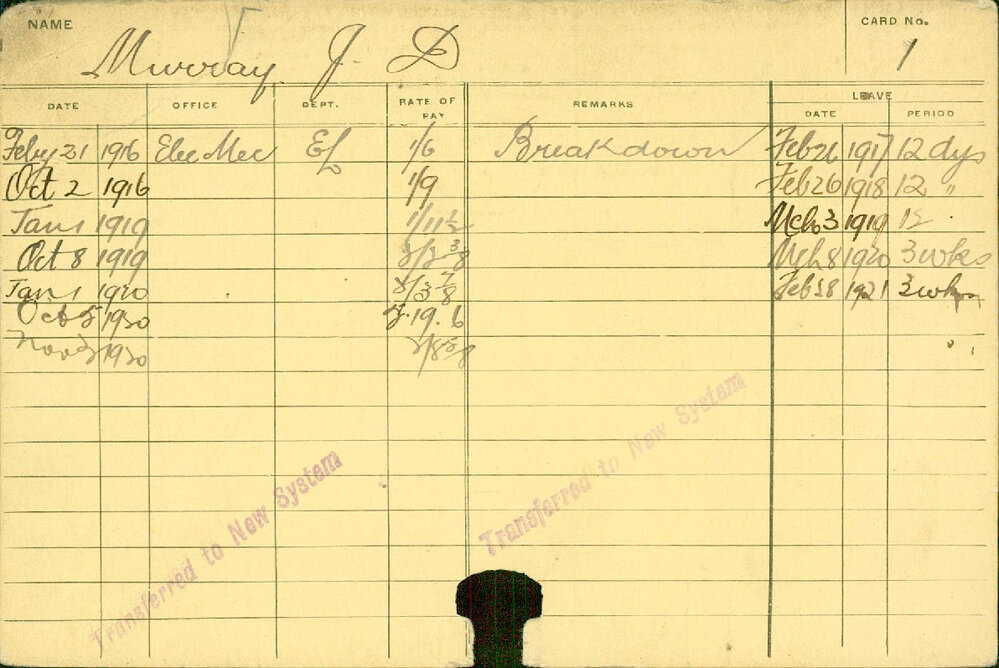 NAME
CARD No.
Murray J. D
1
DATE OFFICE DEPT. RATE OF PAY REMARKS LEAVE
DATE PERIOD
Feby 21 1916 Elec Mec EL 1/6 Breakdown Feb 26 1917 12 dys
Oct 2 1916 1/9 Feb 26 1918 12 "
Jan 1 1919 1/11½ Mch 3 1919 12
Oct 8 1919 Mch 8 1920 3 wks
Jan 1 1920 Feb 28 1921 3 wks
Oct 5 1920 19. 6
Nov 1920
Transferred to New System
Transferred to New System